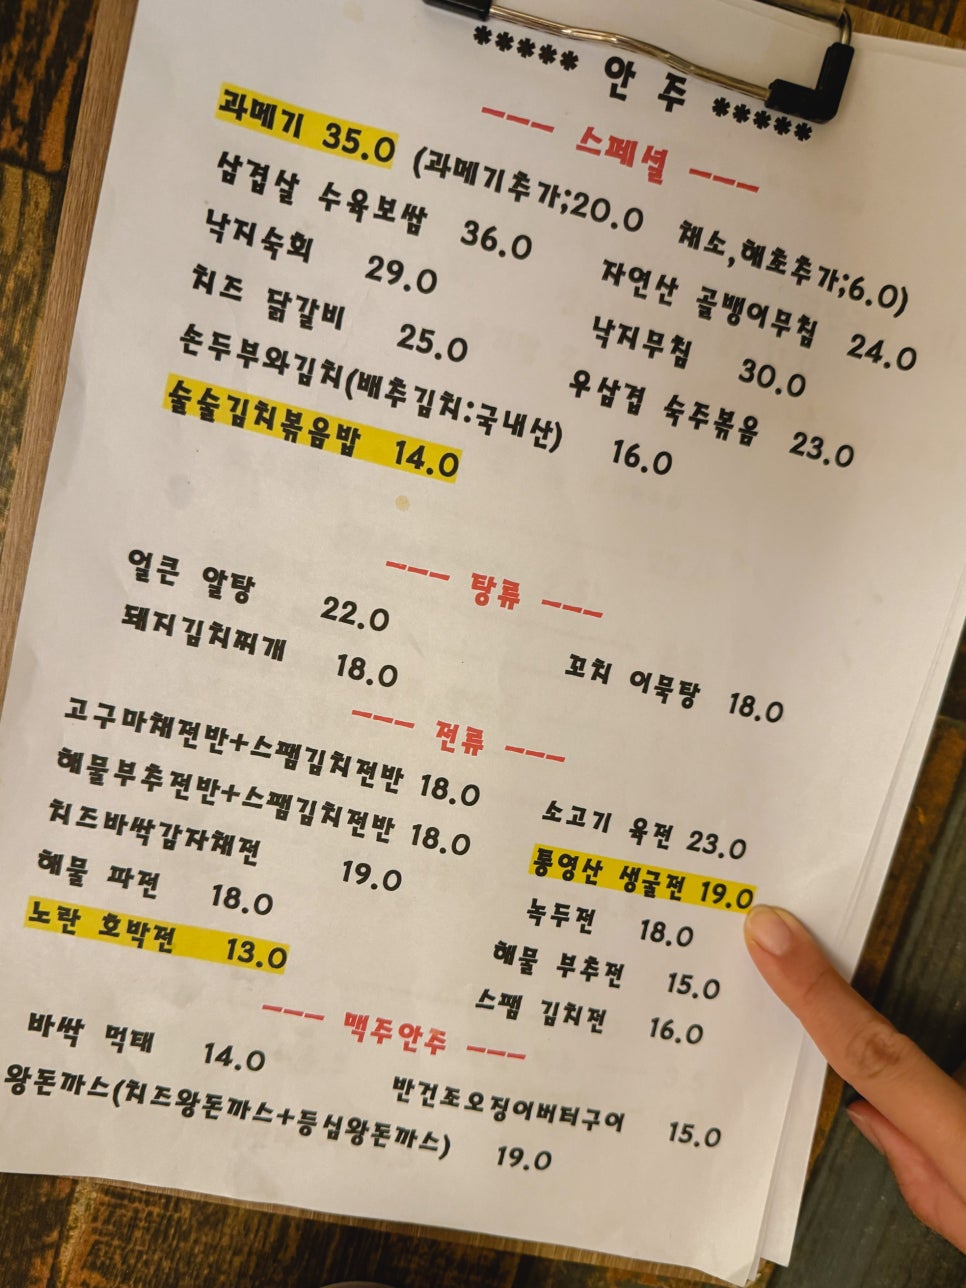 ***** 안 주 *****
--- 스페셜 ---
과메기 35.0 (과메기추가;20.0 채소,해초추가;6.0)
삼겹살 수육보쌈 36.0 자연산 골뱅이무침 24.0
낙지숙회 29.0 낙지무침 30.0
치즈 닭갈비 25.0 우삼겹 숙주볶음 23.0
손두부와김치(배추김치:국내산) 16.0
술술김치볶음밥 14.0
--- 탕류 ---
얼큰 알탕 22.0 꼬치 어묵탕 18.0
돼지김치찌개 18.0
--- 전류 ---
고구마채전반+스팸김치전반 18.0 소고기 육전 23.0
해물부추전반+스팸김치전반 18.0 통영산 생굴전 19.0
치즈바싹감자채전 19.0 녹두전 18.0
해물 파전 18.0 해물 부추전 15.0
노란 호박전 13.0 스팸 김치전 16.0
--- 맥주안주 ---
바싹 먹태 14.0 반건조오징어버터구이 15.0
왕돈까스(치즈왕돈까스+등심왕돈까스) 19.0